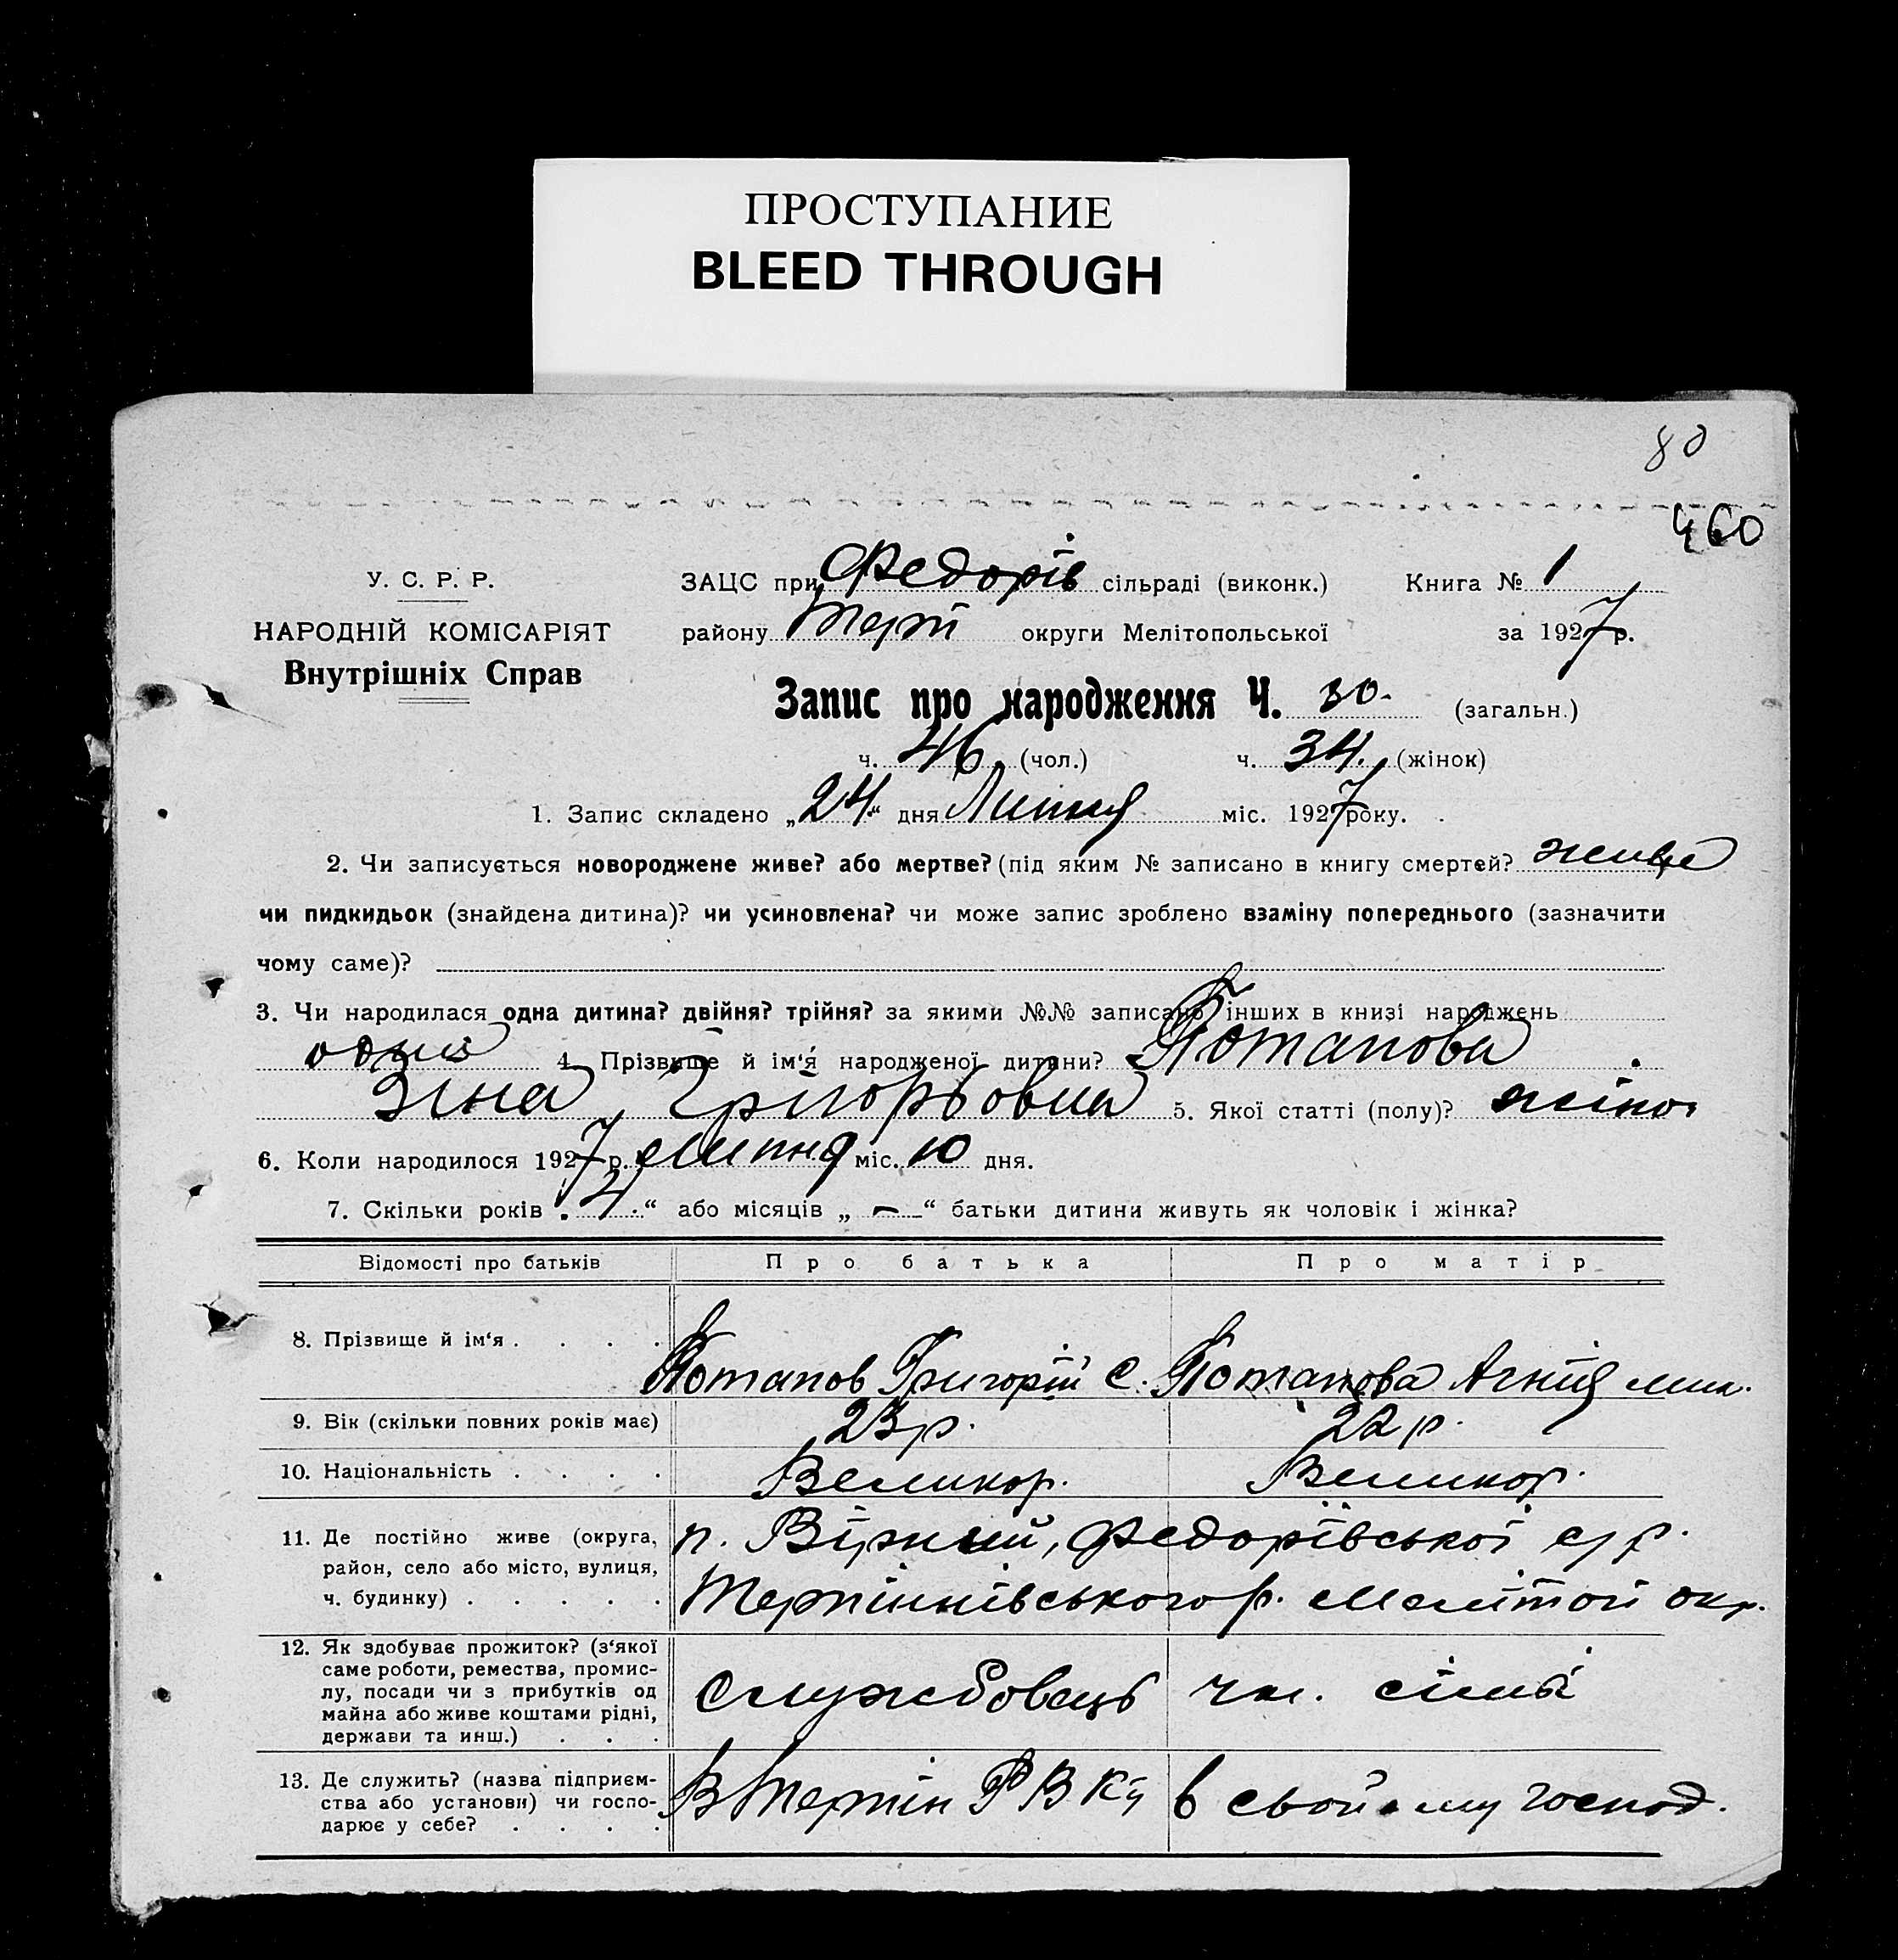 ПРОСТУПАНИЕ
BLEED THROUGH
80
460
У. С. Р. Р.
НАРОДНІЙ КОМІСАРІЯТ
Внутрішніх Справ
ЗАЦС при Федорів сільраді (виконк.) Книга № 1
району Терп округи Мелітопольської за 1927 р.
Запис про народження Ч. 80. (загальн.)
ч. 46 (чол.) ч. 34. (жінок)
1. Запис складено „24“ дня Липня міс. 1927 року.
2. Чи записується новороджене живе? або мертве? (під яким № записано в книгу смертей? живе
чи пидкидьок (знайдена дитина)? чи усиновлена? чи може запис зроблено взаміну попереднього (зазначити
чому саме)?
3. Чи народилася одна дитина? двійня? трійня? за якими №№ записано інших в книзі народжень
одна 4. Прізвище й ім‘я народженої дитини? Потапова
Зіна Григорьовна 5. Якої статті (полу)? жіноч
6. Коли народилося 1927 р. липня міс. 10 дня.
7. Скільки років „4“ або місяців „ — “ батьки дитини живуть як чоловік і жінка?
Відомості про батьків Про батька Про матір
8. Прізвище й ім‘я . . . . Потапов Григорій С. Потапова Агнія мик.
9. Вік (скільки повних років має) 23 р. 22 р.
10. Національність . . . . Великор. Великор.
11. Де постійно живе (округа, район, село або місто, вулиця, ч. будинку) . . . . .
п. Вірний, Федорівської с/р.
Терпіннівського р. Меліт окр.
12. Як здобуває прожиток? (з‘якої саме роботи, ремества, промислу, посади чи з прибутків од майна або живе коштами рідні, держави та инш.) . . .
службовець чл. сімьі
13. Де служить? (назва підприємства або установи) чи господарює у себе? . . . .
В Терпін РВКу в свойому господ.